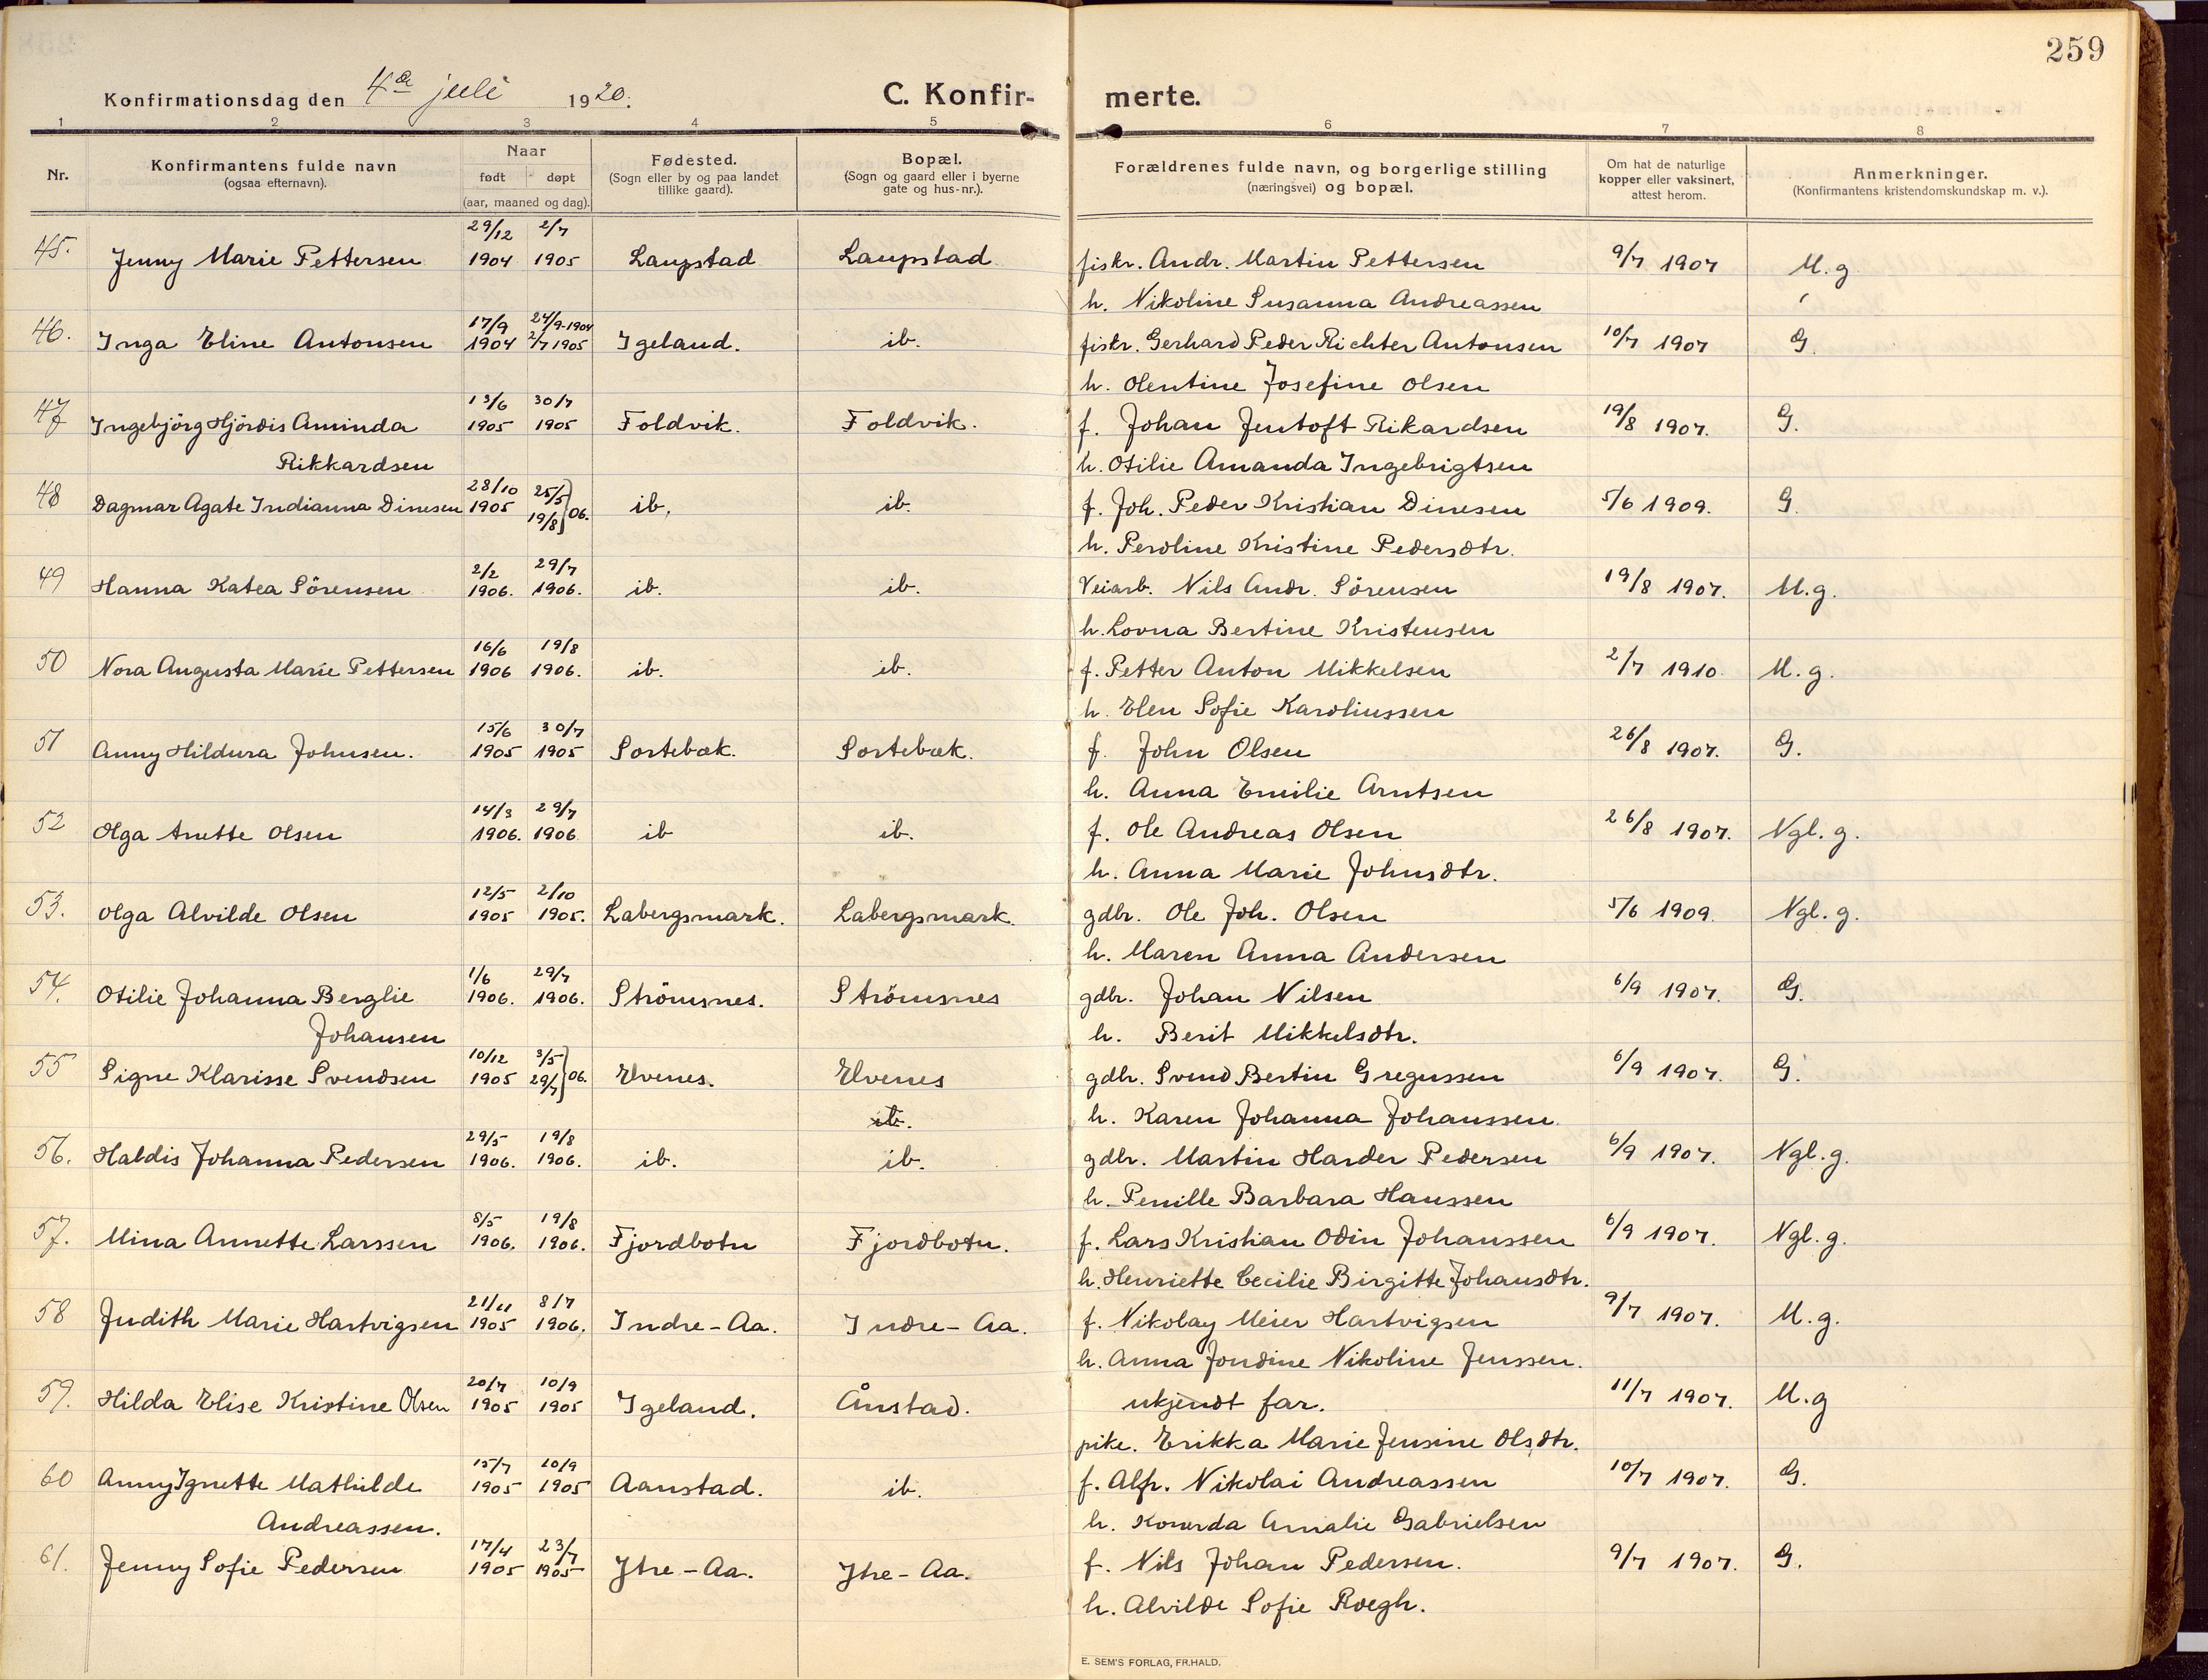 259
Konfirmationsdag den 4de juli 1920.
C. Konfirmerte.
1 2 3 4 5 6 7 8
Nr.
Konfirmantens fulde navn
(ogsaa efternavn).
Naar
født døpt
(aar, maaned og dag).
Fødested.
(Sogn eller by og paa landet
tillike gaard).
Bopæl.
(Sogn og gaard eller i byerne
gate og hus-nr.).
Forældrenes fulde navn, og borgerlige stilling
(næringsvei) og bopæl.
Om hat de naturlige
kopper eller vaksinert,
attest herom.
Anmerkninger.
(Konfirmantens kristendomskundskap m. v.).
29/12 2/7
45. Jenny Marie Pettersen 1904 1905 Laupstad Laupstad fiskr. Andr. Martin Pettersen 9/7 1907 M.g
h. Nikoline Susanna Andreassen
17/9 24/9-1904
46. Inga Eline Antonsen 1904 2/7 1905 Igeland. ib. fiskr. Gerhard Peder Richter Antonsen 10/7 1907 G.
h. Olentine Josefine Olsen
13/6 30/7
47 Ingebjörg Hjördis Aminda 1905 1905 Foldvik. Foldvik. f. Johan Jentoft Rikardsen 19/8 1907. G.
Rikkardsen h. Otilie Amanda Ingebrigtsen
28/10 25/5
48 Dagmar Agate Indianna Dinesen 1905 19/8 } 06. ib. ib. f. Joh. Peder Kristian Dinesen 5/6 1909. G.
h. Peroline Kristine Pedersdtr.
2/2 29/7
49 Hanna Katea Sörensen 1906. 1906. ib. ib. Veiarb. Nils Andr. Sörensen 19/8 1907. M.g.
h. Lovna Bertine Kristensen
16/6 19/8
50 Nora Augusta Marie Pettersen 1906 1906. ib. ib. f. Petter Anton Mikkelsen 2/7 1910. M.g.
h. Elen Sofie Karoliussen
15/6 30/7
51 Anny Hildura Johnsen. 1905 1905 Sortebæk. Sortebæk. f. John Olsen 26/8 1907. G.
h. Anna Emilie Arntsen
14/3 29/7
52 Olga Anette Olsen 1906. 1906 ib ib. f. Ole Andreas Olsen 26/8 1907. Ngl. g.
h. Anna Marie Johnsdtr.
12/5 2/10
53. Olga Alvilde Olsen 1905 1905. Labergsmark. Labergsmark. gdbr. Ole Joh. Olsen 5/6 1909. Ngl. g.
h. Maren Anna Andersen
1/6 29/7
54. Otilie Johanna Berglie 1906. 1906. Strömsnes. Strömsnes gdbr. Johan Nilsen 6/9 1907. G.
Johansen h. Berit Mikkelsdtr.
10/12 3/5
55 Signe Klarisse Svendsen 1905 29/7 } 06. Elvenes. Elvenes gdbr. Svend Bertin Gregussen 6/9 1907. G.
ib. h. Karen Johanna Johanssen.
29/5 19/8
56. Haldis Johanna Pedersen 1906. 1906. ib. ib. gdbr. Martin Harder Pedersen 6/9 1907. Ngl. g.
h. Pernille Barbara Hanssen
8/5 19/8
57. Mina Annette Larssen 1906. 1906. Fjordbotn Fjordbotn. f. Lars Kristian Odin Johanssen 6/9 1907. Ngl. g.
h. Henriette Cecilie Birgitte Johansdtr.
21/11 8/7
58 Judith Marie Hartvigsen 1905 1906. Indre-Aa. Indre-Aa. f. Nikolay Meier Hartvigsen 9/7 1907. M.g.
h. Anna Jondine Nikoline Jenssen.
20/7 10/9
59. Hilda Elise Kristine Olsen 1905 1905 Igeland. Ånstad. ukjendt far. 11/7 1907. M.g
pike. Erikka Marie Jensine Olsdtr.
15/7 10/9
60 Anny Ignette Mathilde 1905 1905 Aanstad. ib. f. Alfr. Nikolai Andreassen 10/7 1907. G.
Andreassen. h. Amalie Gabrielsen
17/4 23/7
61. Jenny Sofie Pedersen 1905 1905 Ytre-Aa. Ytre-Aa. f. Nils Johan Pedersen. 9/7 1907. G.
h. Alvilde Sofie Roegh.
E. SEM'S FORLAG, FR.HALD.